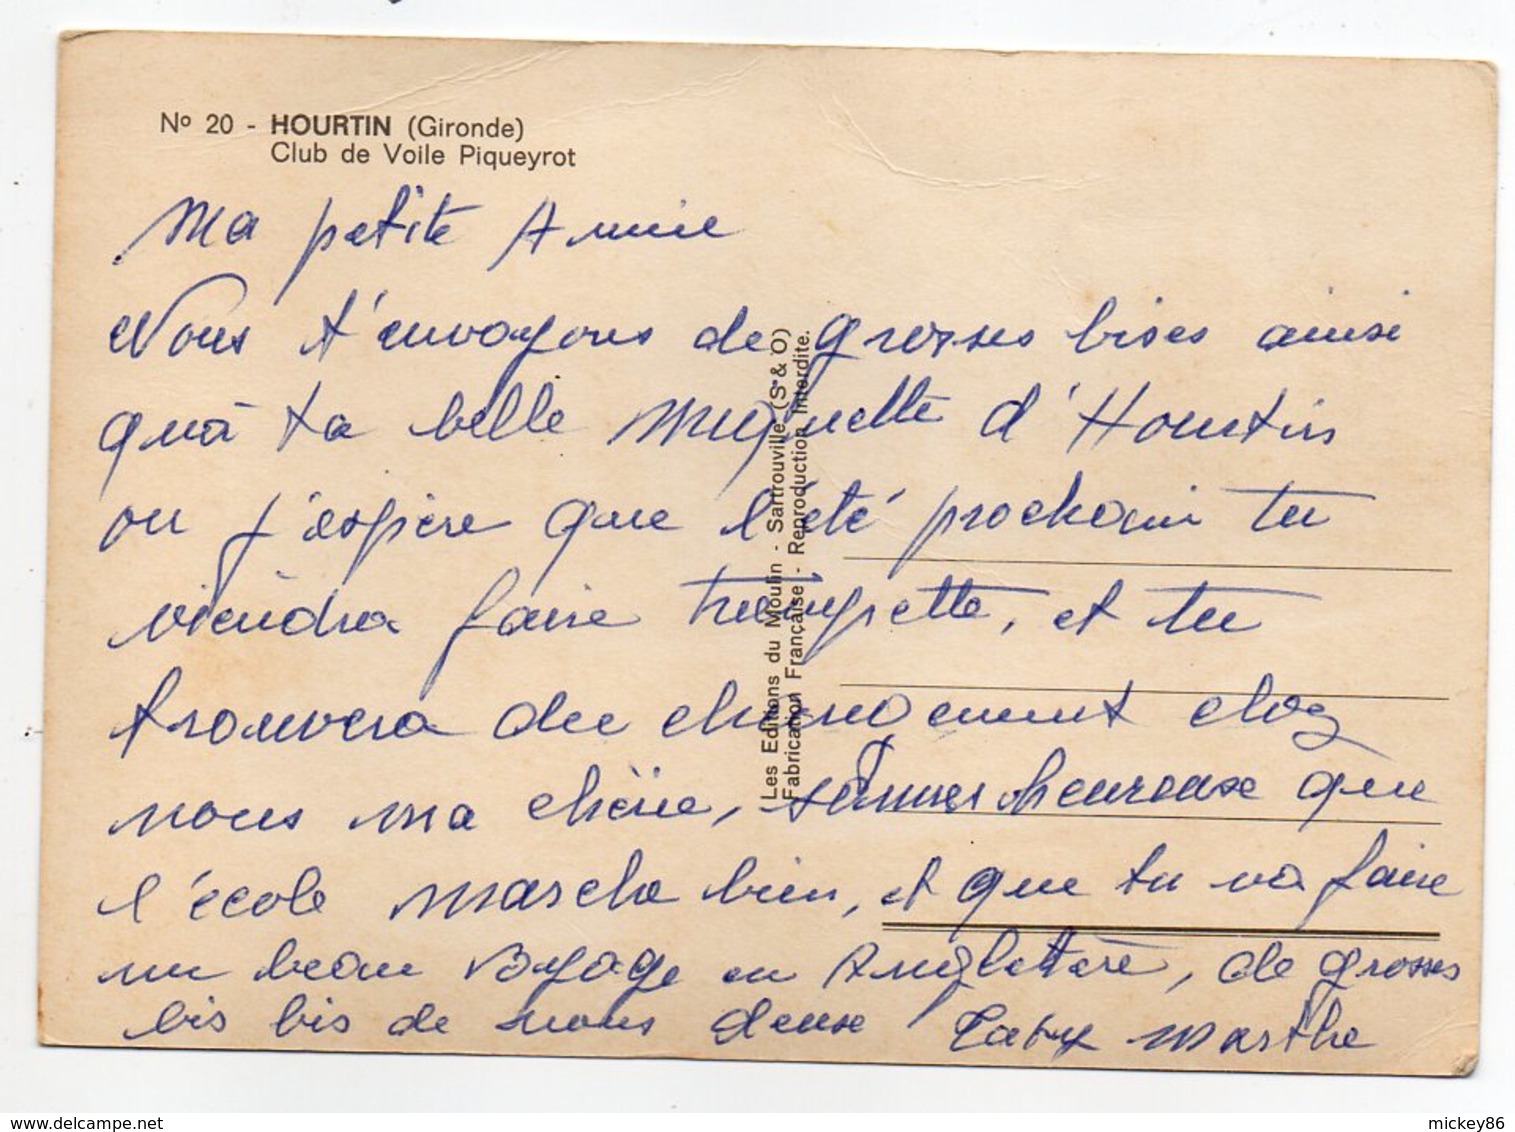 Nº 20 - HOURTIN (Gironde)
Club de Voile Piqueyrot
Ma petite Annie
Nous t'envoyons de grosses bises ainsi
qu'à ta belle Miquette d'Hourtin
ou j'espère que l'été prochain tu
viendra faire trempette, et tu
trouvera du changement chez
nous ma chérie, sommes heureuse que
l'école marche bien, et que tu va faire
un beau voyage en Angleterre, de grosses
bis bis de nous deux Taty Marthe
Les Editions du Moulin - Sartrouville (S & O)
Fabrication Française - Reproduction Interdite.
mickey86